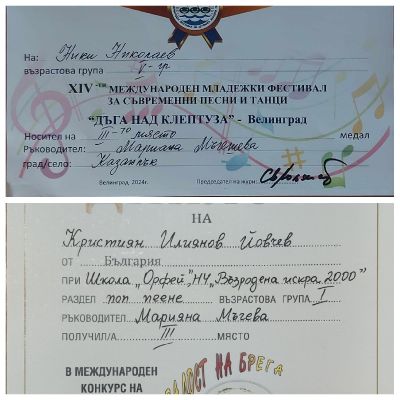 На: Ники Николаев
възрастова група V-гр
XIV-ТИ МЕЖДУНАРОДЕН МЛАДЕЖКИ ФЕСТИВАЛ
ЗА СЪВРЕМЕННИ ПЕСНИ И ТАНЦИ
"ДЪГА НАД КЛЕПТУЗА" - Велинград
Носител на III-то място медал
Ръководител: Мариана Мъгева
град/село: Казанлък
Велинград, 2024г. Председател на жури:
НА
Кристиян Илиянов Йовчев
ОТ България
ПРИ Школа „Орфей", НЧ „Възродена искра 2000"
РАЗДЕЛ поп пеене ВЪЗРАСТОВА ГРУПА I
РЪКОВОДИТЕЛ Марияна Мъгева
ПОЛУЧИЛ/А III МЯСТО
В МЕЖДУНАРОДЕН
КОНКУРС НА
НА БРЕГА